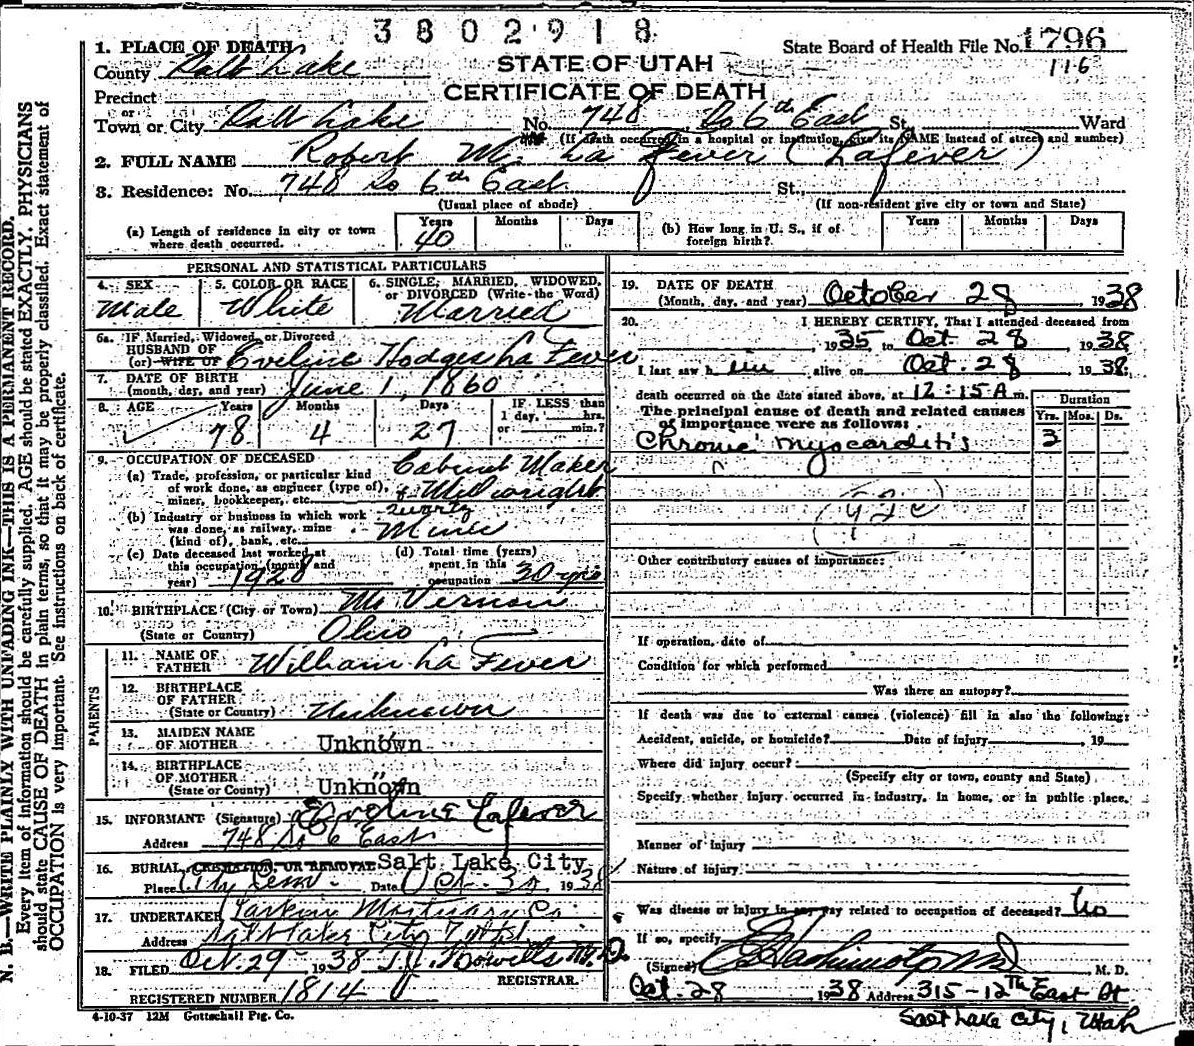 3802918
1. PLACE OF DEATH
State Board of Health File No. 1796
116
County Salt Lake
STATE OF UTAH
Precinct
CERTIFICATE OF DEATH
or
Town or City Salt Lake No. 748 So 6th East St. Ward
(If death occurred in a hospital or institution, give its NAME instead of street and number)
2. FULL NAME Robert M. La Fever (Lafever)
3. Residence: No. 748 So 6th East St.
(Usual place of abode) (If non-resident give city or town and State)
(a) Length of residence in city or town where death occurred. Years 40 Months Days
(b) How long in U. S., if of foreign birth? Years Months Days
PERSONAL AND STATISTICAL PARTICULARS
4. SEX Male
5. COLOR OR RACE White
6. SINGLE, MARRIED, WIDOWED, or DIVORCED (Write the Word) Married
6a. IF Married, Widowed, or Divorced
HUSBAND OF
(or) WIFE OF Eveline Hodges La Fever
7. DATE OF BIRTH
(month, day, and year) June 1, 1860
8. AGE Years 78 Months 4 Days 27 IF LESS than 1 day, hrs. or min.?
9. OCCUPATION OF DECEASED
(a) Trade, profession, or particular kind of work done, as engineer (type of), miner, bookkeeper, etc. Cabinet Maker & Millwright
(b) Industry or business in which work was done, as railway, mine (kind of), bank, etc. Quartz Mines
(c) Date deceased last worked at this occupation (month and year) 1928
(d) Total time (years) spent in this occupation 30 yrs
10. BIRTHPLACE (City or Town) Mt Vernon
(State or Country) Ohio
PARENTS
11. NAME OF FATHER William La Fever
12. BIRTHPLACE OF FATHER (State or Country) Unknown
13. MAIDEN NAME OF MOTHER Unknown
14. BIRTHPLACE OF MOTHER (State or Country) Unknown
15. INFORMANT (Signature) Eveline Lafever
Address 748 So 6 East
16. BURIAL, CREMATION, OR REMOVAL Salt Lake City
Place City Cem. Date Oct. 30 1938
17. UNDERTAKER Larkin Mortuary Co.
Address Salt Lake City Utah
18. FILED Oct. 29 1938 T.J. Howells M.D.
REGISTRAR.
REGISTERED NUMBER 1814
4-10-37 12M Gottschall Ptg. Co.
19. DATE OF DEATH
(Month, day, and year) October 28, 1938
20. I HEREBY CERTIFY, That I attended deceased from
1935 to Oct. 28 1938
I last saw him alive on Oct. 28 1938;
death occurred on the date stated above, at 12:15 A m.
The principal cause of death and related causes of importance were as follows:
Duration
Yrs. Mos. Ds.
Chronic Myocarditis 3
Other contributory causes of importance:
If operation, date of
Condition for which performed
Was there an autopsy?
If death was due to external causes (violence) fill in also the following:
Accident, suicide, or homicide? Date of injury , 19
Where did injury occur?
(Specify city or town, county and State)
Specify whether injury occurred in industry, in home, or in public place,
Manner of injury
Nature of injury
Was disease or injury in any way related to occupation of deceased? No
If so, specify
(Signed) E Hashimoto MD M. D.
Oct. 28 1938 Address 315-12th East St
Salt Lake City, Utah
N. B.—WRITE PLAINLY WITH UNFADING INK—THIS IS A PERMANENT RECORD.
Every item of information should be carefully supplied. AGE should be stated EXACTLY. PHYSICIANS
should state CAUSE OF DEATH in plain terms, so that it may be properly classified. Exact statement of
OCCUPATION is very important. See instructions on back of certificate.